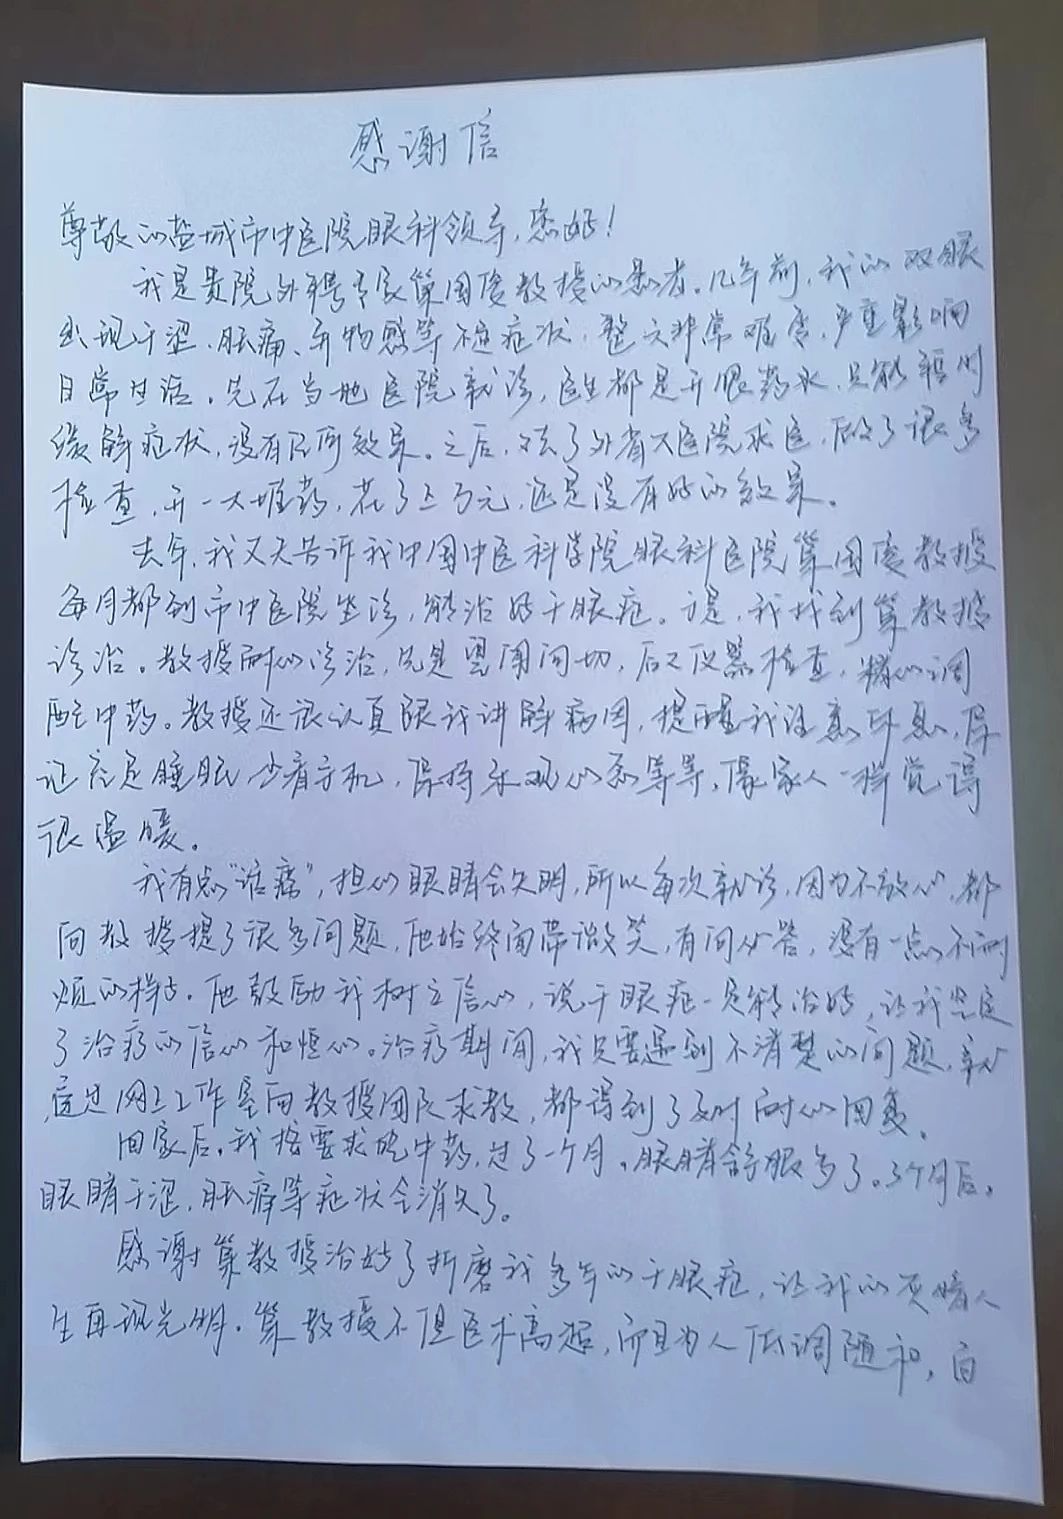 感谢信
尊敬的盐城市中医院眼科领导，您好！
我是贵院外聘专家算国俊教授的患者。几年前，我的双眼
出现干涩、胀痛、异物感等不适症状，整天非常难受，严重影响
日常生活。先在当地医院就诊，医生都是开眼药水，只能暂时
缓解症状，没有任何效果。之后，又去了外省大医院求医，做了很多
检查，开一大堆药，花了上万元，还是没有好的效果。
去年，我又天告诉我中国中医科学院眼科医院算国俊教授
每月都到市中医院坐诊，能治好干眼症。于是，我找到算教授
诊治。教授耐心诊治，先是望闻问切，后又仪器检查，精心调
配中药。教授还很认真跟我讲解病因，提醒我注意休息，保
证充足睡眠，少看手机，保持乐观心态等等，像家人一样觉得
很温暖。
我有点“话痨”，担心眼睛会失明，所以每次就诊，因为不放心，都
向教授提了很多问题，他始终面带微笑，有问必答，没有一点不耐
烦的样子。他鼓励我树立信心，说干眼症一定能治好，让我坚定
了治疗的信心和恒心。治疗期间，我只要遇到不清楚的问题，就
通过网上工作室向教授团队求教，都得到了及时耐心回复。
回家后，我按要求吃中药，过了一个月，眼睛舒服多了。3个月后，
眼睛干涩、胀痛等症状全消失了。
感谢算教授治好了折磨我多年的干眼症，让我的灰暗人
生再现光明。算教授不但医术高超，而且为人低调随和，白